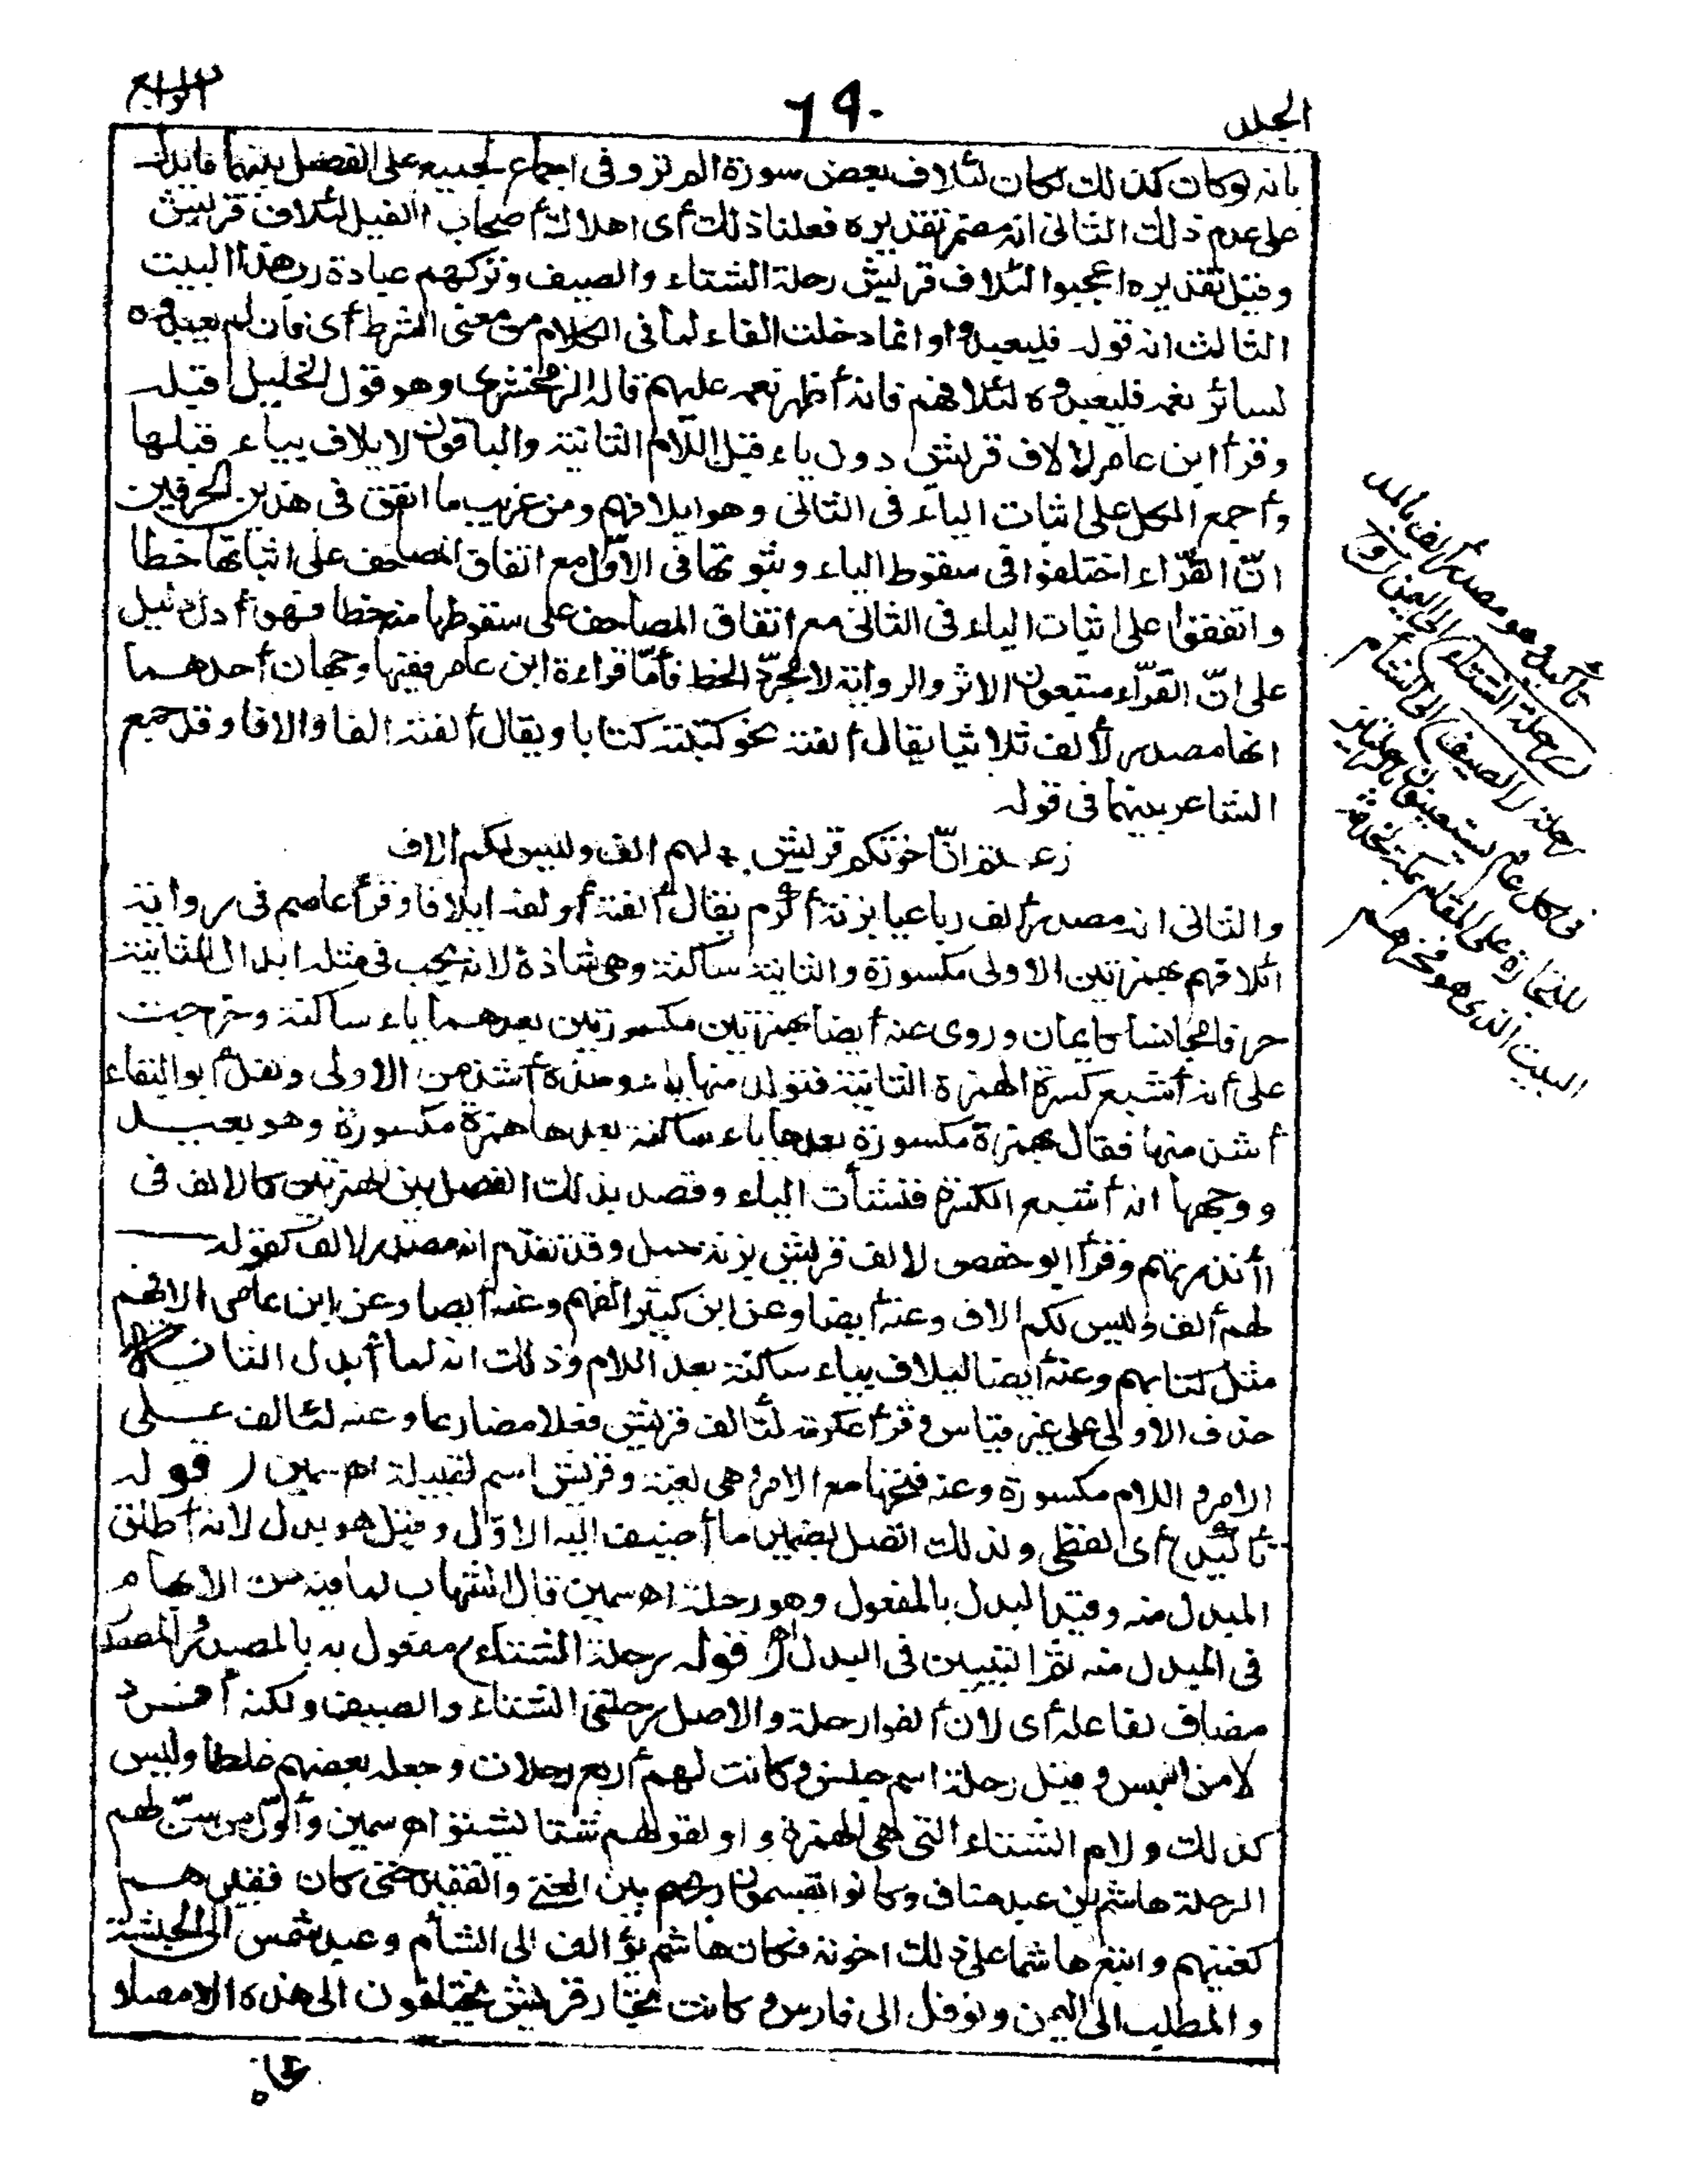 الجلد
٦٩٠
الرابع
بأنه لو كان كذلك لكان لئلاف بعض سورة الم تر وفى اجماع الجميع على الفصل بينهما ما يدل
على عدم ذلك الثانى انه مضمر تقديره فعلنا ذلك أى اهلاك أصحاب الفيل لئلاف قريش
وقيل تقديره اعجبوا لئلاف قريش رحلة الشتاء والصيف وتركهم عبادة رب هذا البيت
الثالث انه قوله فليعبدوا وانما دخلت الفاء لما فى الكلام من معنى الشرط أى فان لم يعبدوه
لسائر نعمه فليعبدوه لئلافهم فانه أظهر نعمه عليهم قاله الزمخشرى وهو قول الخليل قبله
وقرأ ابن عامر لالاف قريش دون ياء قبل اللام الثانية والباقون لايلاف بياء قبلها
وأجمع الكل على اثبات الياء فى الثانى وهو ايلافهم ومن غريب ما اتفق فى هذين الحرفين
انّ القرّاء اختلفوا فى سقوط الياء وثبوتها فى الاوّل مع اتفاق المصاحف على اثباتها خطا
واتفقوا على اثبات الياء فى الثانى مع اتفاق المصاحف على سقوطها منه خطا فهو أدل دليل
على انّ القرّاء متبعون الاثر والرواية لا مجرّد الخط فأمّا قراءة ابن عامر ففيها وجهان أحدهما
انها مصدر لألف ثلاثيا يقال ألفته نحو كتبته كتابا ويقال ألفته الفا والافا وقد جمع
الشاعر بينهما فى قوله
زعمتم انّ اخوتكم قريش * لهم الف وليس لكم الاف
والثانى انه مصدر ألف رباعيا بزنة أكرم يقال ألفته أولفه ايلافا وقرأ عاصم فى رواية
ائلافهم بهمزتين الاولى مكسورة والثانية ساكنة وهى شاذة لانه يجب فى مثله ابدال الثانية
حرفا مجانسا كايمان وروى عنه أيضا بهمزتين مكسورتين بعدهما ياء ساكنة وخرجت
على أنه أشبع كسرة الهمزة الثانية فتولد منها ياء وهذه أشذ من الاولى ونقل أبو البقاء
أشذ منها فقال بهمزة مكسورة بعدها ياء ساكنة بعدها همزة مكسورة وهو بعيد
ووجهها انه أشبع الكسرة فنشأت الياء وقصد بذلك الفصل بين الهمزتين كالالف فى
أأنذرتهم وقرأ ابو جعفر لالف قريش بزنة حمل وقد تقدّم انه مصدر لالف كقوله
لهم ألف وليس لكم الاف وعنه أيضا وعن ابن كثير الفهم وعنه أيضا وعن ابن عامر الافهم
مثل كتابهم وعنه أيضا ليلاف بياء ساكنة بعد اللام وذلك انه لما أبدل الثانية
حذف الاولى على غير قياس وقرأ عكرمة لتألف قريش فعلا مضارعا وعنه لئالف على
الامر واللام مكسورة وعنه فتحها مع الامر وهى لغية وقريش اسم لقبيلة اه سمين (قوله
تأكيد) أى لفظى ولذلك اتصل بضمير ما أضيف اليه الاوّل وقيل هو بدل لانه أطلق
المبدل منه وقيد البدل بالمفعول وهو رحلة اه سمين قال الشهاب لما فيه من الابهام
فى المبدل منه ثم التبيين فى البدل اه (قوله رحلة الشتاء) مفعول به بالمصدر والمصدر
مضاف لفاعله أى لان ألفوا رحلة والاصل رحلتى الشتاء والصيف ولكنه أفرد
لامن اللبس وقيل رحلة اسم جنس وكانت لهم أربع رحلات وجعله بعضهم غلطا وليس
كذلك ولام الشتاء التى هى الهمزة واو لقولهم شتا يشتو اه سمين وأوّل من سنّ لهم
الرحلة هاشم بن عبد مناف وكانوا يقسمون ربحهم بين الغنى والفقير حتى كان فقيرهم
كغنيهم واتبع هاشما على ذلك اخوته فكان هاشم يؤالف الى الشأم وعبد شمس الى الحبشة
والمطلب الى اليمن ونوفل الى فارس وكانت تجار قريش يختلفون الى هذه الامصار
تأكيد وهو مصدر آلف بالمد
(رحلة الشتاء) الى اليمن (و)
رحلة (الصيف) الى الشأم
فى كل عام يستعينون بالرحلتين
للتجارة على المقام بمكة لخدمة
البيت الذى هو فخرهم